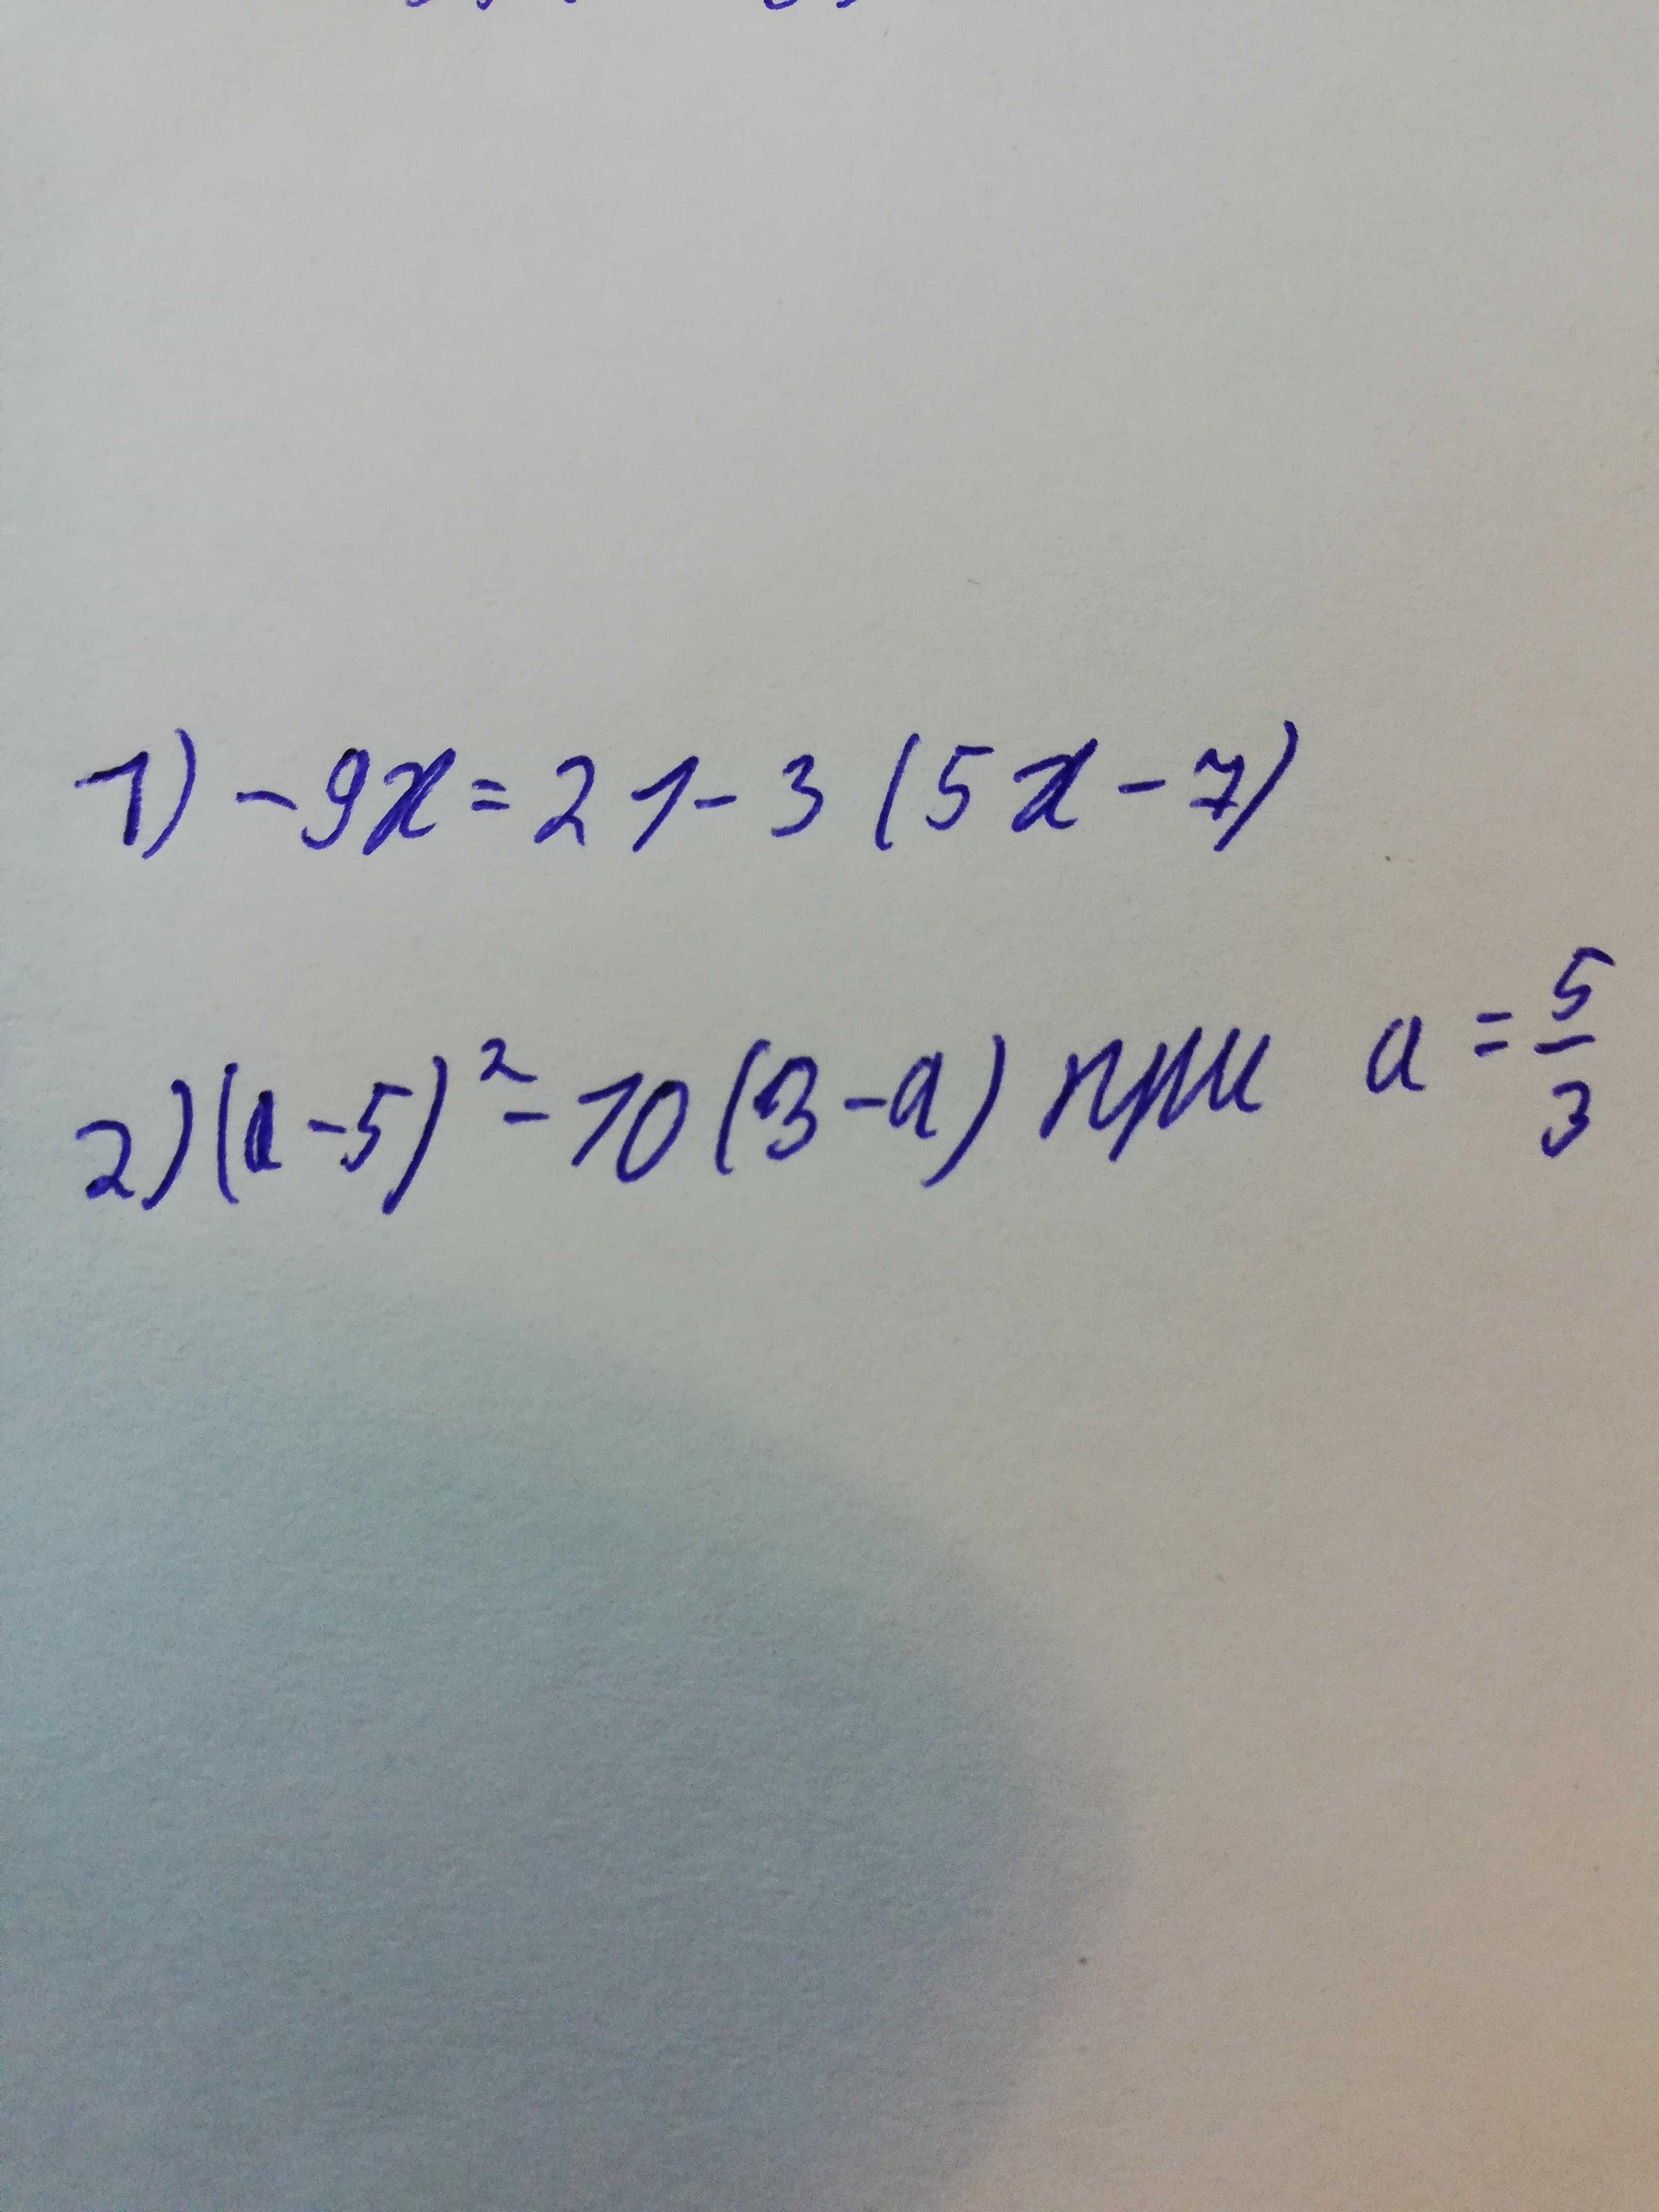 1) -9x = 21 - 3 (5x - 7)
2) (a - 5)² - 10 (3 - a) при a = 5/3